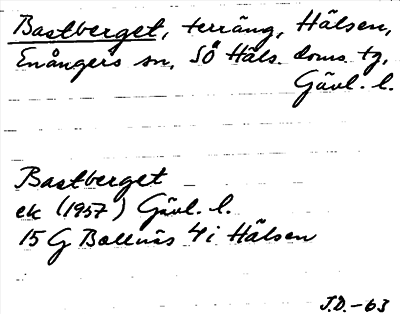 Bastberget, terräng, Hälsen,
Enångers sn, SÖ Häls. doms. tg,
Gävl. l.
Bastberget
ek (1957) Gävl. l.
15 G Bollnäs 4i Hälsen
J.D.-63